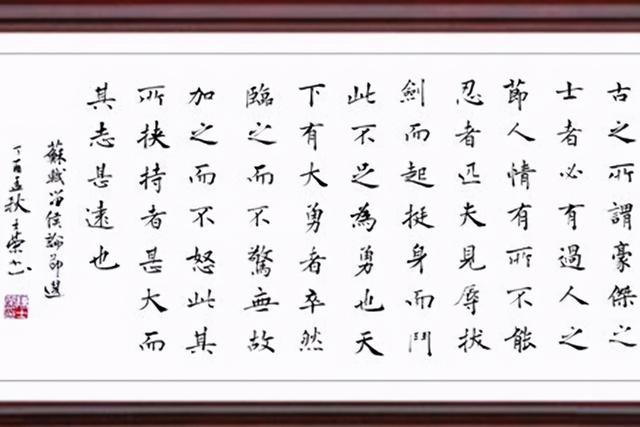 古之所謂豪傑之
士者必有過人之
節人情有所不能
忍者匹夫見辱拔
劍而起挺身而鬥
此不足為勇也天
下有大勇者卒然
臨之而不驚無故
加之而不怒此其
所挾持者甚大而
其志甚遠也
蘇軾留侯論節選
丁酉孟秋士榮書